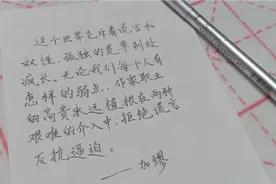 这个世界充斥着谎言和
奴性，孤独的荒草到处
疯长。无论我们每个人有
怎样的弱点，作家职业
的高贵永远植根在两种
艰难的介入中：拒绝谎言
反抗逼迫。
——加缪